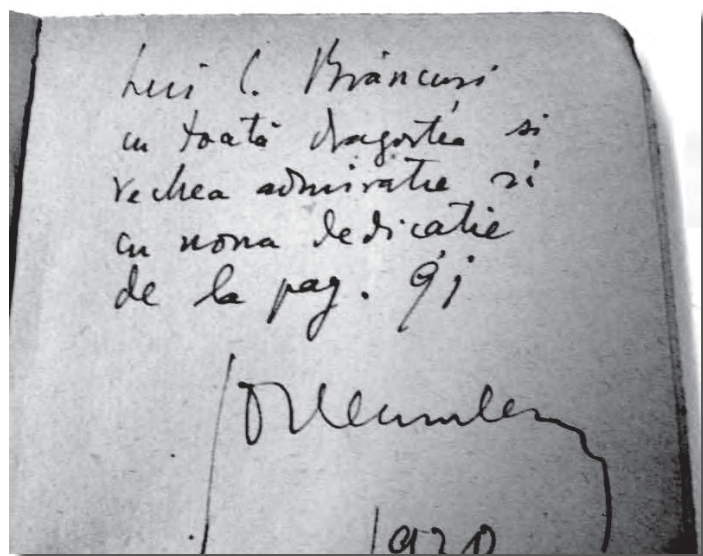 Lui C. Brâncusi
cu toată dragostea si
vechea admiratie si
cu noua dedicatie
de la pag. 91